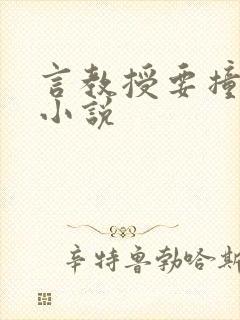 言教授要撞
小说
辛特鲁勃哈斯